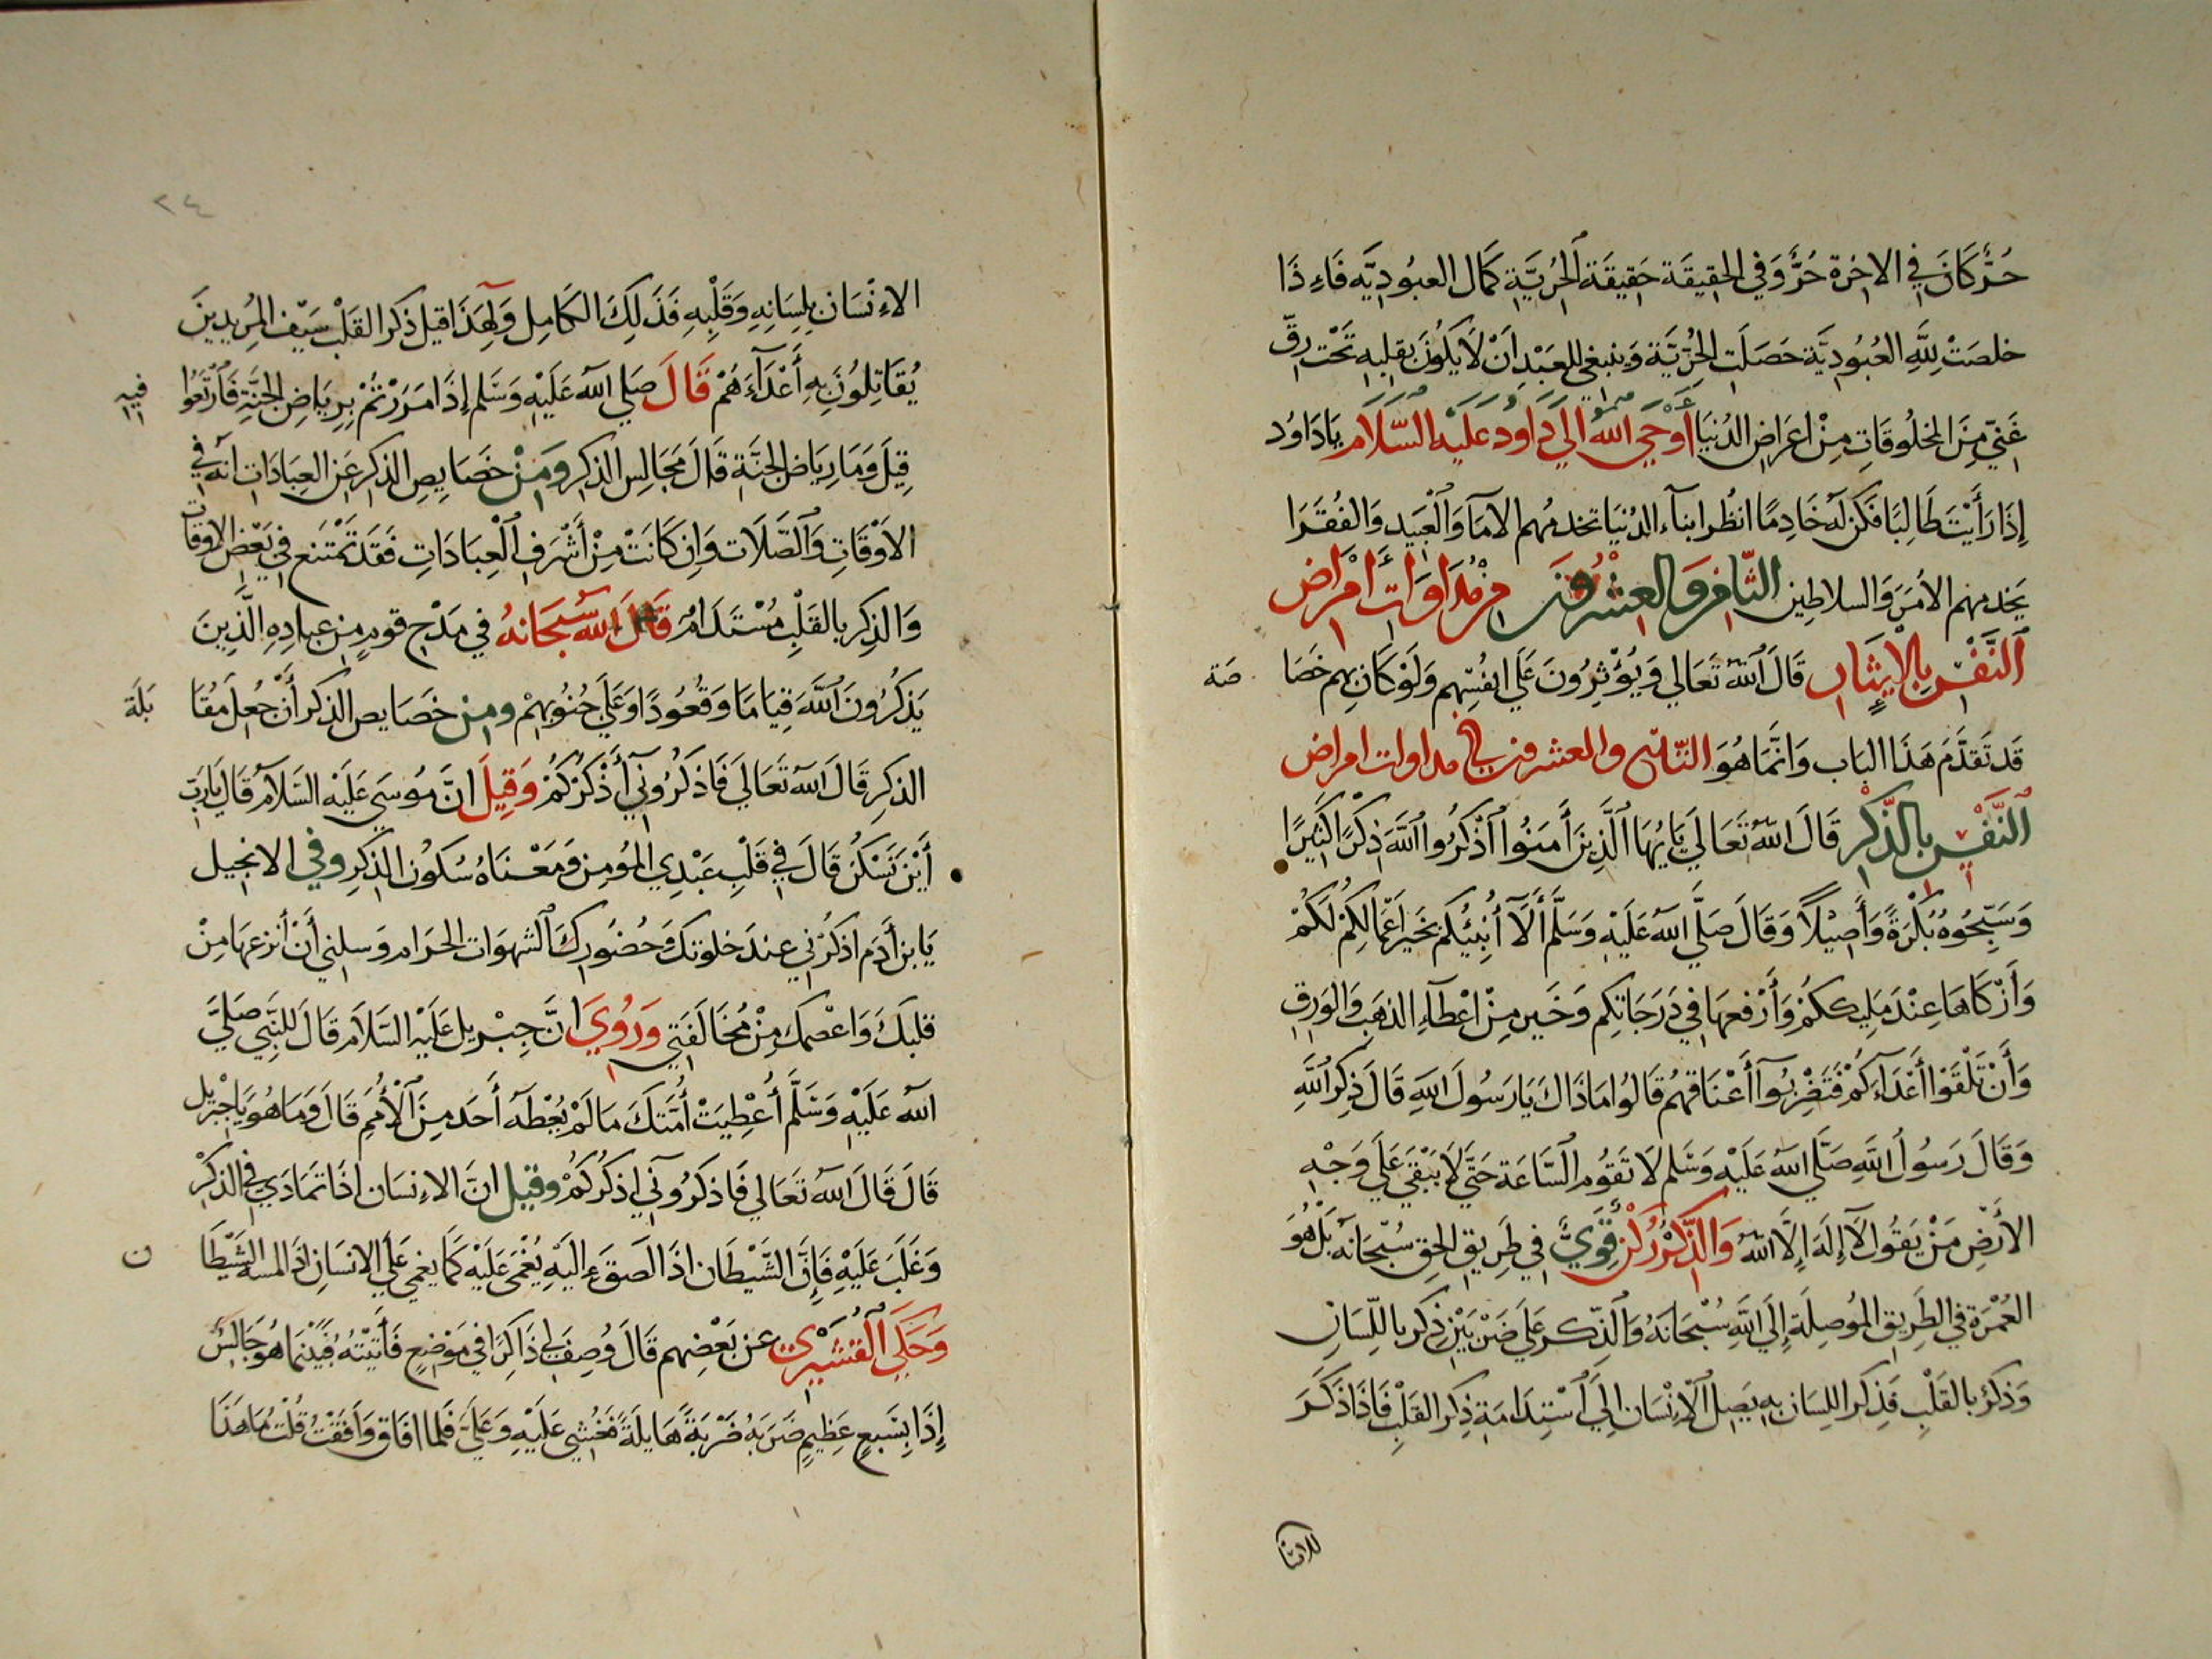 حُرٌّ كَانَ فِي الاخِرَة حُرٌّ وَفِي الحَقِيقَة حَقِيقَةُ الحُرِّيَّةِ كَمَال العبُودِيَّه فَاِذَا
خلصَتْ لِلَّهِ العُبُودِيَّة حَصَلَتِ الحُرِّيَّة وَينبغي للعَبْدِ اَنْ لَا يَكُونَ بقلبِهِ تَحْت رِقِّ
غَنيّ مِنَ المخلُوقَاتِ مِنْ اَعرَاضِ الدُنيَا أَوْحَي اللهُ الَي دَاود عَلَيْهِ السَّلَام يَادَاوُد
إِذَا رَأَيْتَ طَالِبًا فَكُن لَهُ خَادِمًا انظُر ابنآء الدُنيَا تخدمُهم الامَا وَالْعَبِيد وَالفُقَرَا
يَخدمهم الأمَرَ وَالسلاطِين الثَّامِن وَالعِشْرُونَ مِنْ مُدَاوَات أمْرَاض
اَلنَّفْسِ بِالْإِيثَارِ قَالَ اللهُ تَعَالي وَيُؤْثِرُونَ عَلَي انفُسِّهِم وَلَوْ كَانَ بِهِم خَصَا صَة
قَد تَقَدَّمَ هَذَا البَاب وَانَّمَا هُوَ التَّاسِع والعشرون في مداوات امراض
اَلنَّفْسِ بِالذِّكْرِ قَالَ اللهُ تَعَالَي يَايُهَا الَّذِينَ أَمَنُوا اُذْكُرُوا اللهَ ذِكْرًا كَثِيرًا
وَسَبِّحُوهُ بُكْرَةً وَأَصِيْلاً وَقَالَ صَلَّي اللهُ عَلَيْهِ وَسَلَّمَ أَلَآ أُنَبِئُكُم بِخَيْرِ اَعْمَالِكُمْ لَكُمْ
وَأَزْكَاهَا عِنْدَ مَلِيكِكُمْ وَأَرْفعهَا فِي دَرَجَاتِكِم وَخَير مِنْ اعْطَآءِ الذهَبِ وَالوَرِقِ
وَأَنْ تَلْقَوْا أَعْدَآءَكُمْ فَتَضْرِبُوآ أَعْنَاقهُم قَالُوا مَا ذَاكَ يَارَسُولَ اللهِ قَالَ ذِكْرُ اللَّهِ
وَقَالَ رَسُولُ اللَّهِ صَلَّي اللهُ عَلَيْهِ وَسَلم لَا تَقُوْم السَّاعَة حَتَّي لَا يَبْقَي عَلَي وَجْهِ
الأَرْضِ مَنْ يَقُول لآَ إِلَهَ اِلَّا اللهُ وَالذِّكْرُ رُكْنٌ قَوِيٌّ فِي طَرِيقِ الحَقِ سُبْحَانَه بَلْ هُوَ
العُمْدَة فِي الطَرِيقِ المُوصِلَةِ إِلَي اللَّهِ سُبْحَانَهُ وَالذِّكر عَلَي ضَرْبَيْنِ ذِكر بِاللِّسَانِ
وَذِكرٌ بِالقَلْبِ فَذِكر اللِسَان بِهِ يَصِل الْاِنْسَان اِلَي اَسْتِدَامَةِ ذِكر القَلْبِ فَاذَا ذَكَرَ
للانسا
٢٤
الاِنْسَان بِلِسَانِهِ وَقَلْبِهِ فَذَلِكَ الكَامِل وَلِهَذَا قيل ذِكر القَلْب سَيْف المُرِيدِينَ
يُقَاتِلُونَ بِهِ أَعْدَآءَهُمْ قَالَ صَلي اللهُ عَلَيْهِ وَسَلم إِذَا مَرَرْتُمْ بِرِيَاضِ الجَنَّةِ فَارْتَعُوا فيه
قِيلَ وَمَا رِيَاض الجَنَّةِ قَالَ مَجَالِس الذِكرِ وَمِنْ خَصَايِصِ الذِكرِ عَنِ العِبَادَات انّه فِي
الاَوْقَاتِ وَالصَّلَات وَاِن كَانَتْ مِنْ أَشْرَفِ الْعِبَادَاتِ فَقَد تَمْتَنع فِي بَعْضِ الاوقَات
وَالذِكر بالقَلْبِ مُسْتَدَامٌ قَالَ اللهُ سُبْحَانَهُ فِي مَدْحِ قَومٍ مِن عِبَادِهِ الَّذِينَ
يَذكُرُونَ اللَّهَ قِيَامًا وَقُعُودًا وَعَلَي جُنُوبِهِمْ وَمِنْ خَصَايِصِ الذِكر أَن جُعِلَ مُقَا بَلَة
الذكرِ قَالَ اللهُ تَعَالَي فَاذكُرُونِي أَذْكُرْكُمْ وَقِيلَ اِنَّ مُوسَي عَلَيْهِ السَّلَام قَالَ يَارَبِّ
أَيْنَ تَسْكُنُ قَالَ فِي قَلْبِ عَبْدِي المُؤمِنِ وَمَعْنَاهُ سُكُون الذِكرِ وَفي الانجيل
يَابن أَدَم اذكُرْنِي عِندَ خلوتِكَ وَحُضُورِكَ الشهوَات الحَرَام وَسلني أَنْ أَنزعهَا مِنْ
قلبكَ وَاعْصمك مِنْ مُخَالَفَتي وَرُوِيَ انَّ جِبْرِيل عَلَيْهِ السَّلَام قَالَ للنَّبِي صَلَّي
اللهُ عَلَيْهِ وَسَلَّمَ أُعْطِيَتْ أُمَّتكَ مَا لَمْ يُعْطَهُ أَحَد مِنَ الْأُمَمِ قَالَ وَمَا هُوَ يَاجِبْرِيل
قَالَ قَالَ اللهُ تَعَالي فَاذكرُونِي اذكُرْكُمْ وَقيل انَّ الانسَان اذَا تمَادَي فِي الذِكرْ
وَغَلَبَ عَلَيْهِ فَاِنَّ الشَّيْطَان اذَا الصق اِلَيْهِ يُغْمَي عَلَيْهِ كَمَا يغمي عَلَي الانسَانِ اذَا لمسَهُ الشَّيْطَا ن
وَحَكَي الْقُشَيْرِي عَن بَعْضهِم قَالَ وُصِفَ لي ذَاكِرَا فِي مَوْضِعٍ فَأَتَيْتُهُ فَبَيْنَمَا هُوَ جَالِسٌ
إِذَا بِسَبعٍ عَظِيمٍ ضَرَبَهُ ضَرْبَةً هَايلَةً فَغُشِي عَلَيْهِ وَعَلَيَّ فَلما افَاقَ وَأَفَقْتُ قُلْتُ مَا هَذَا